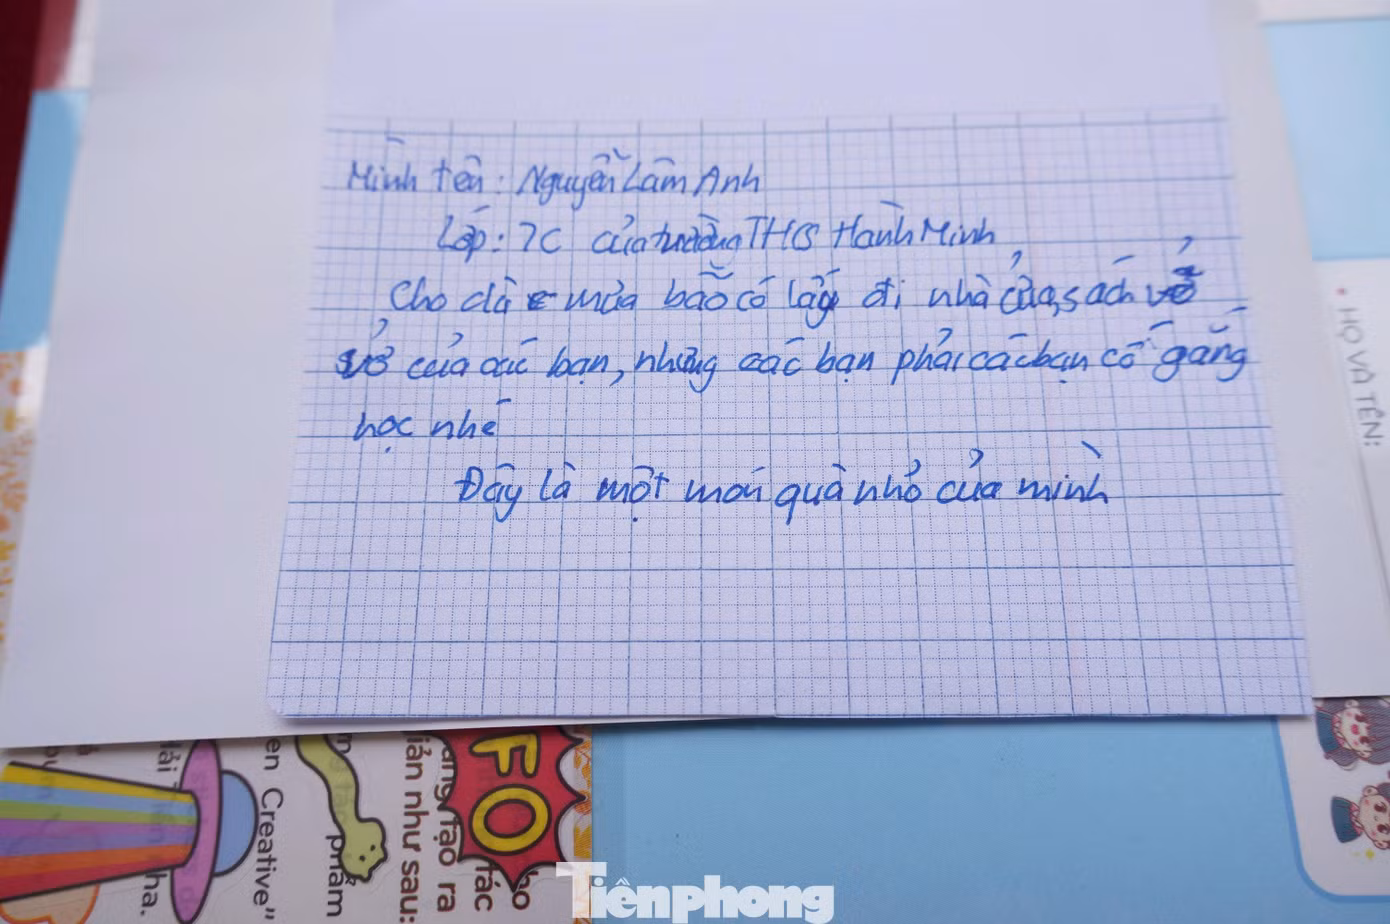 Mình tên: Nguyễn Lâm Anh
Lớp: 7C của trường THCS Hành Minh
Cho dù mưa bão có lấy đi nhà cửa, sách vở
vở của các bạn, nhưng các bạn phải các bạn cố gắng
học nhé
Đây là một món quà nhỏ của mình
HỌ VÀ TÊN:
FO
ho
tác
ạo ra
iản như sau:
phẩm
en Creative"
ha.
Tiềnphong